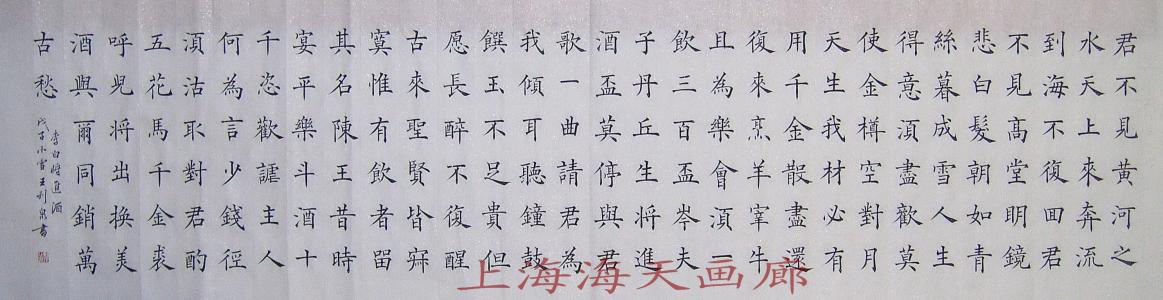 君不見黃河之
水天上來奔流
到海不復囬君
不見髙堂明鏡
悲白髮朝如青
絲暮成雪人生
得意湏盡歡莫
使金樽空對月
天生我材必有
用千金散盡還
復來烹羊宰牛
且為樂會湏一
飲三百盃岑夫
子丹丘生将進
酒盃莫停與君
歌一曲請君為
我傾耳聽鐘鼓
饌玉不足貴但
愿長醉不復醒
古來聖賢皆寂
寞惟有飲者畱
其名陳王昔時
宴平樂斗酒十
千恣歡謔主人
何為言少錢徑
湏沽取對君酌
五花馬千金裘
呼兒将出換美
酒與爾同銷萬
古愁
李白將進酒
戊子小雪王利泉書
上海海天画廊